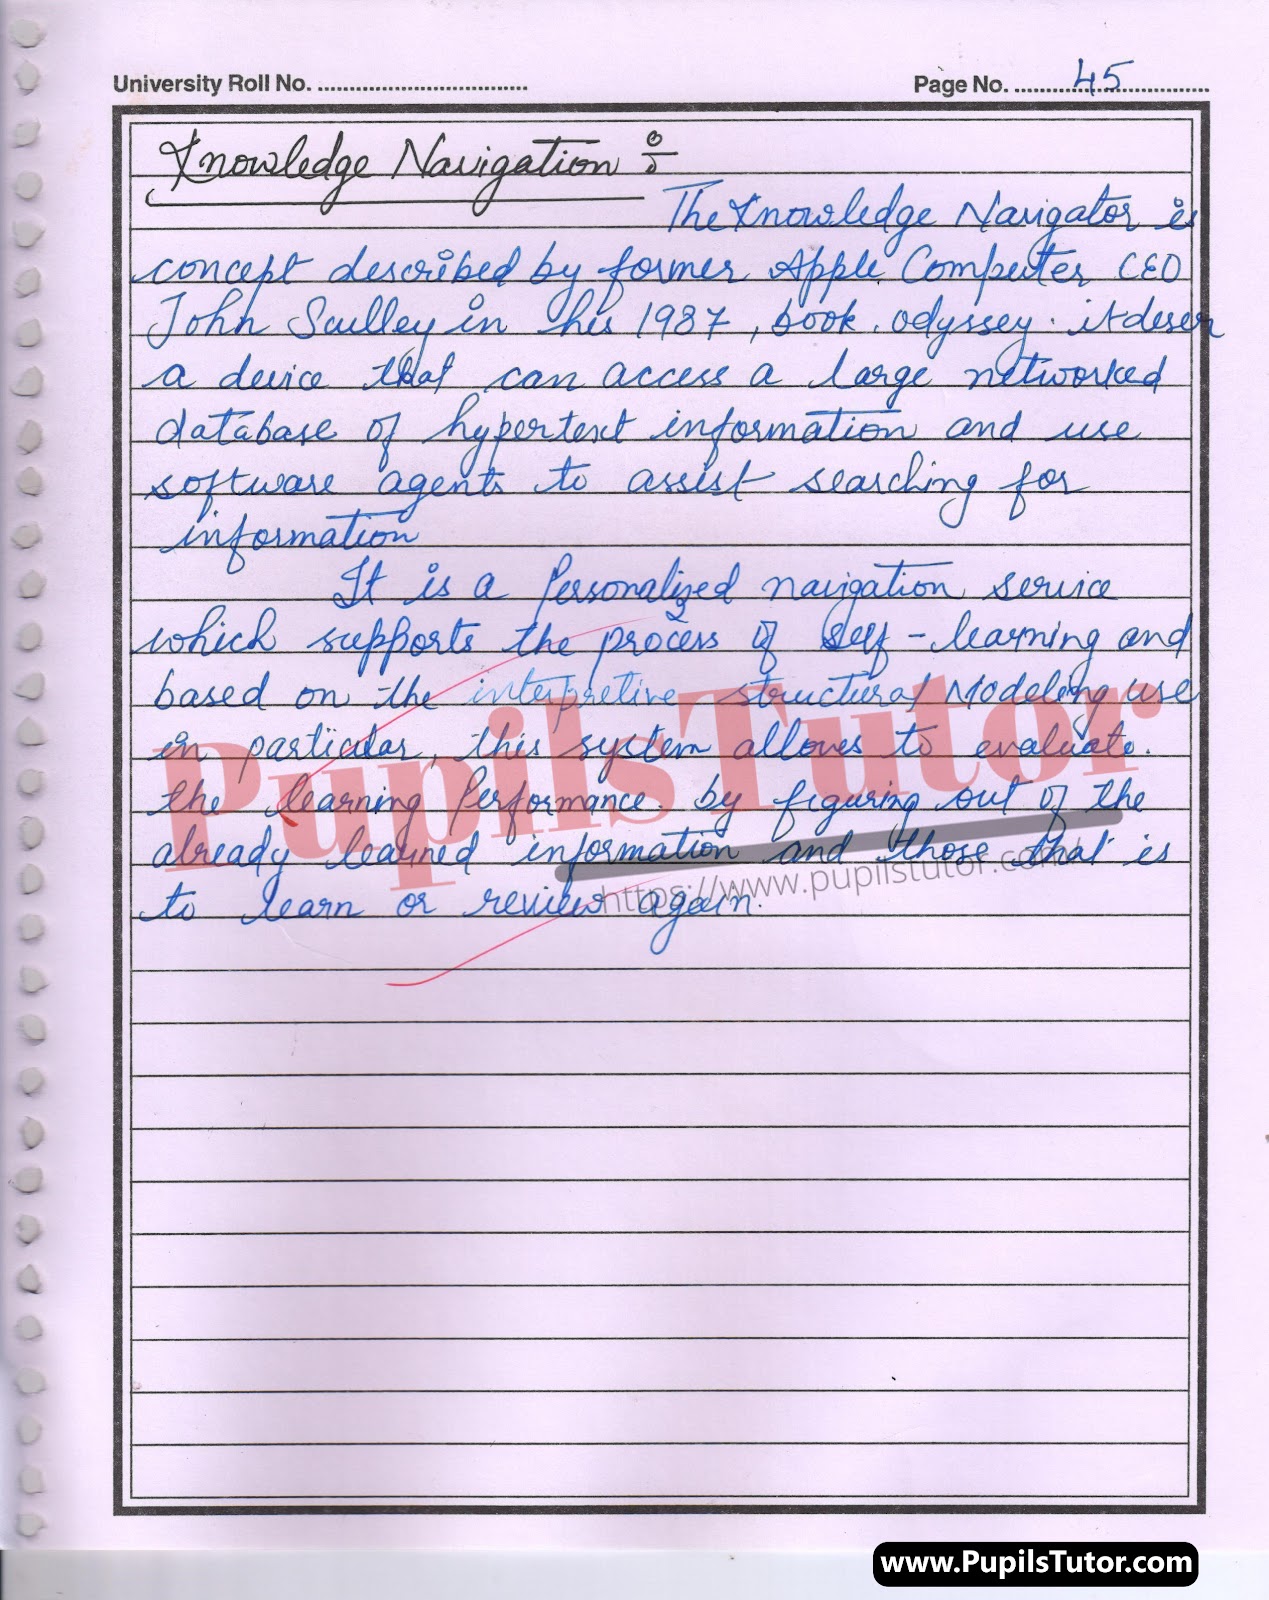 University Roll No. ................................ Page No. ......45......
Knowledge Navigation :-
The Knowledge Navigator is
concept described by former Apple Computer CEO
John Sculley in his 1987, book. odyssey. it descr
a device that can access a large networked
database of hypertext information and use
software agents to assist searching for
information
It is a Personalized navigation service
which supports the process of self-learning and
based on the interpretive structural Modeling use
in particular, this system allows to evaluate.
the learning Performance. by figuring out of the
already learned information and those that is
to learn or review again.
PupilsTutor
https://www.pupilstutor.com
www.PupilsTutor.com